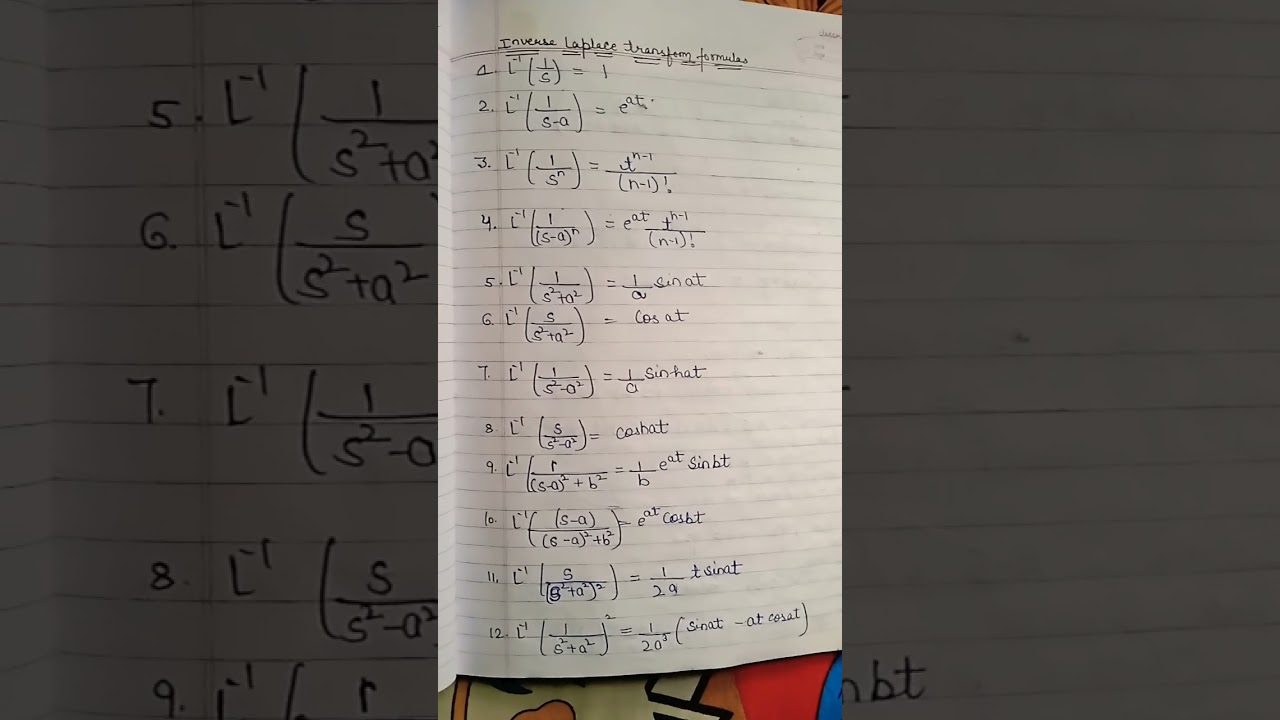 Inverse Laplace transform formulas
1. L⁻¹(1/s) = 1
2. L⁻¹(1/(s-a)) = e^at
3. L⁻¹(1/sⁿ) = t^(n-1)/(n-1)!
4. L⁻¹(1/(s-a)ⁿ) = e^at t^(n-1)/(n-1)!
5. L⁻¹(1/(s²+a²)) = 1/a sinat
6. L⁻¹(s/(s²+a²)) = cosat
7. L⁻¹(1/(s²-a²)) = 1/a sinhat
8. L⁻¹(s/(s²-a²)) = coshat
9. L⁻¹(1/((s-a)²+b²) = 1/b e^at sinbt
10. L⁻¹((s-a)/((s-a)²+b²)) = e^at cosbt
11. L⁻¹(s/(s²+a²)²) = 1/2a t sinat
12. L⁻¹(1/(s²+a²))² = 1/2a³ (sinat - at cosat)
5. L⁻¹(1/(s²+a²
6. L⁻¹(s/(s²+a²
7. L⁻¹(1/(s²-a
8. L⁻¹(s/(s²-a²
9. L⁻¹(1
nbt